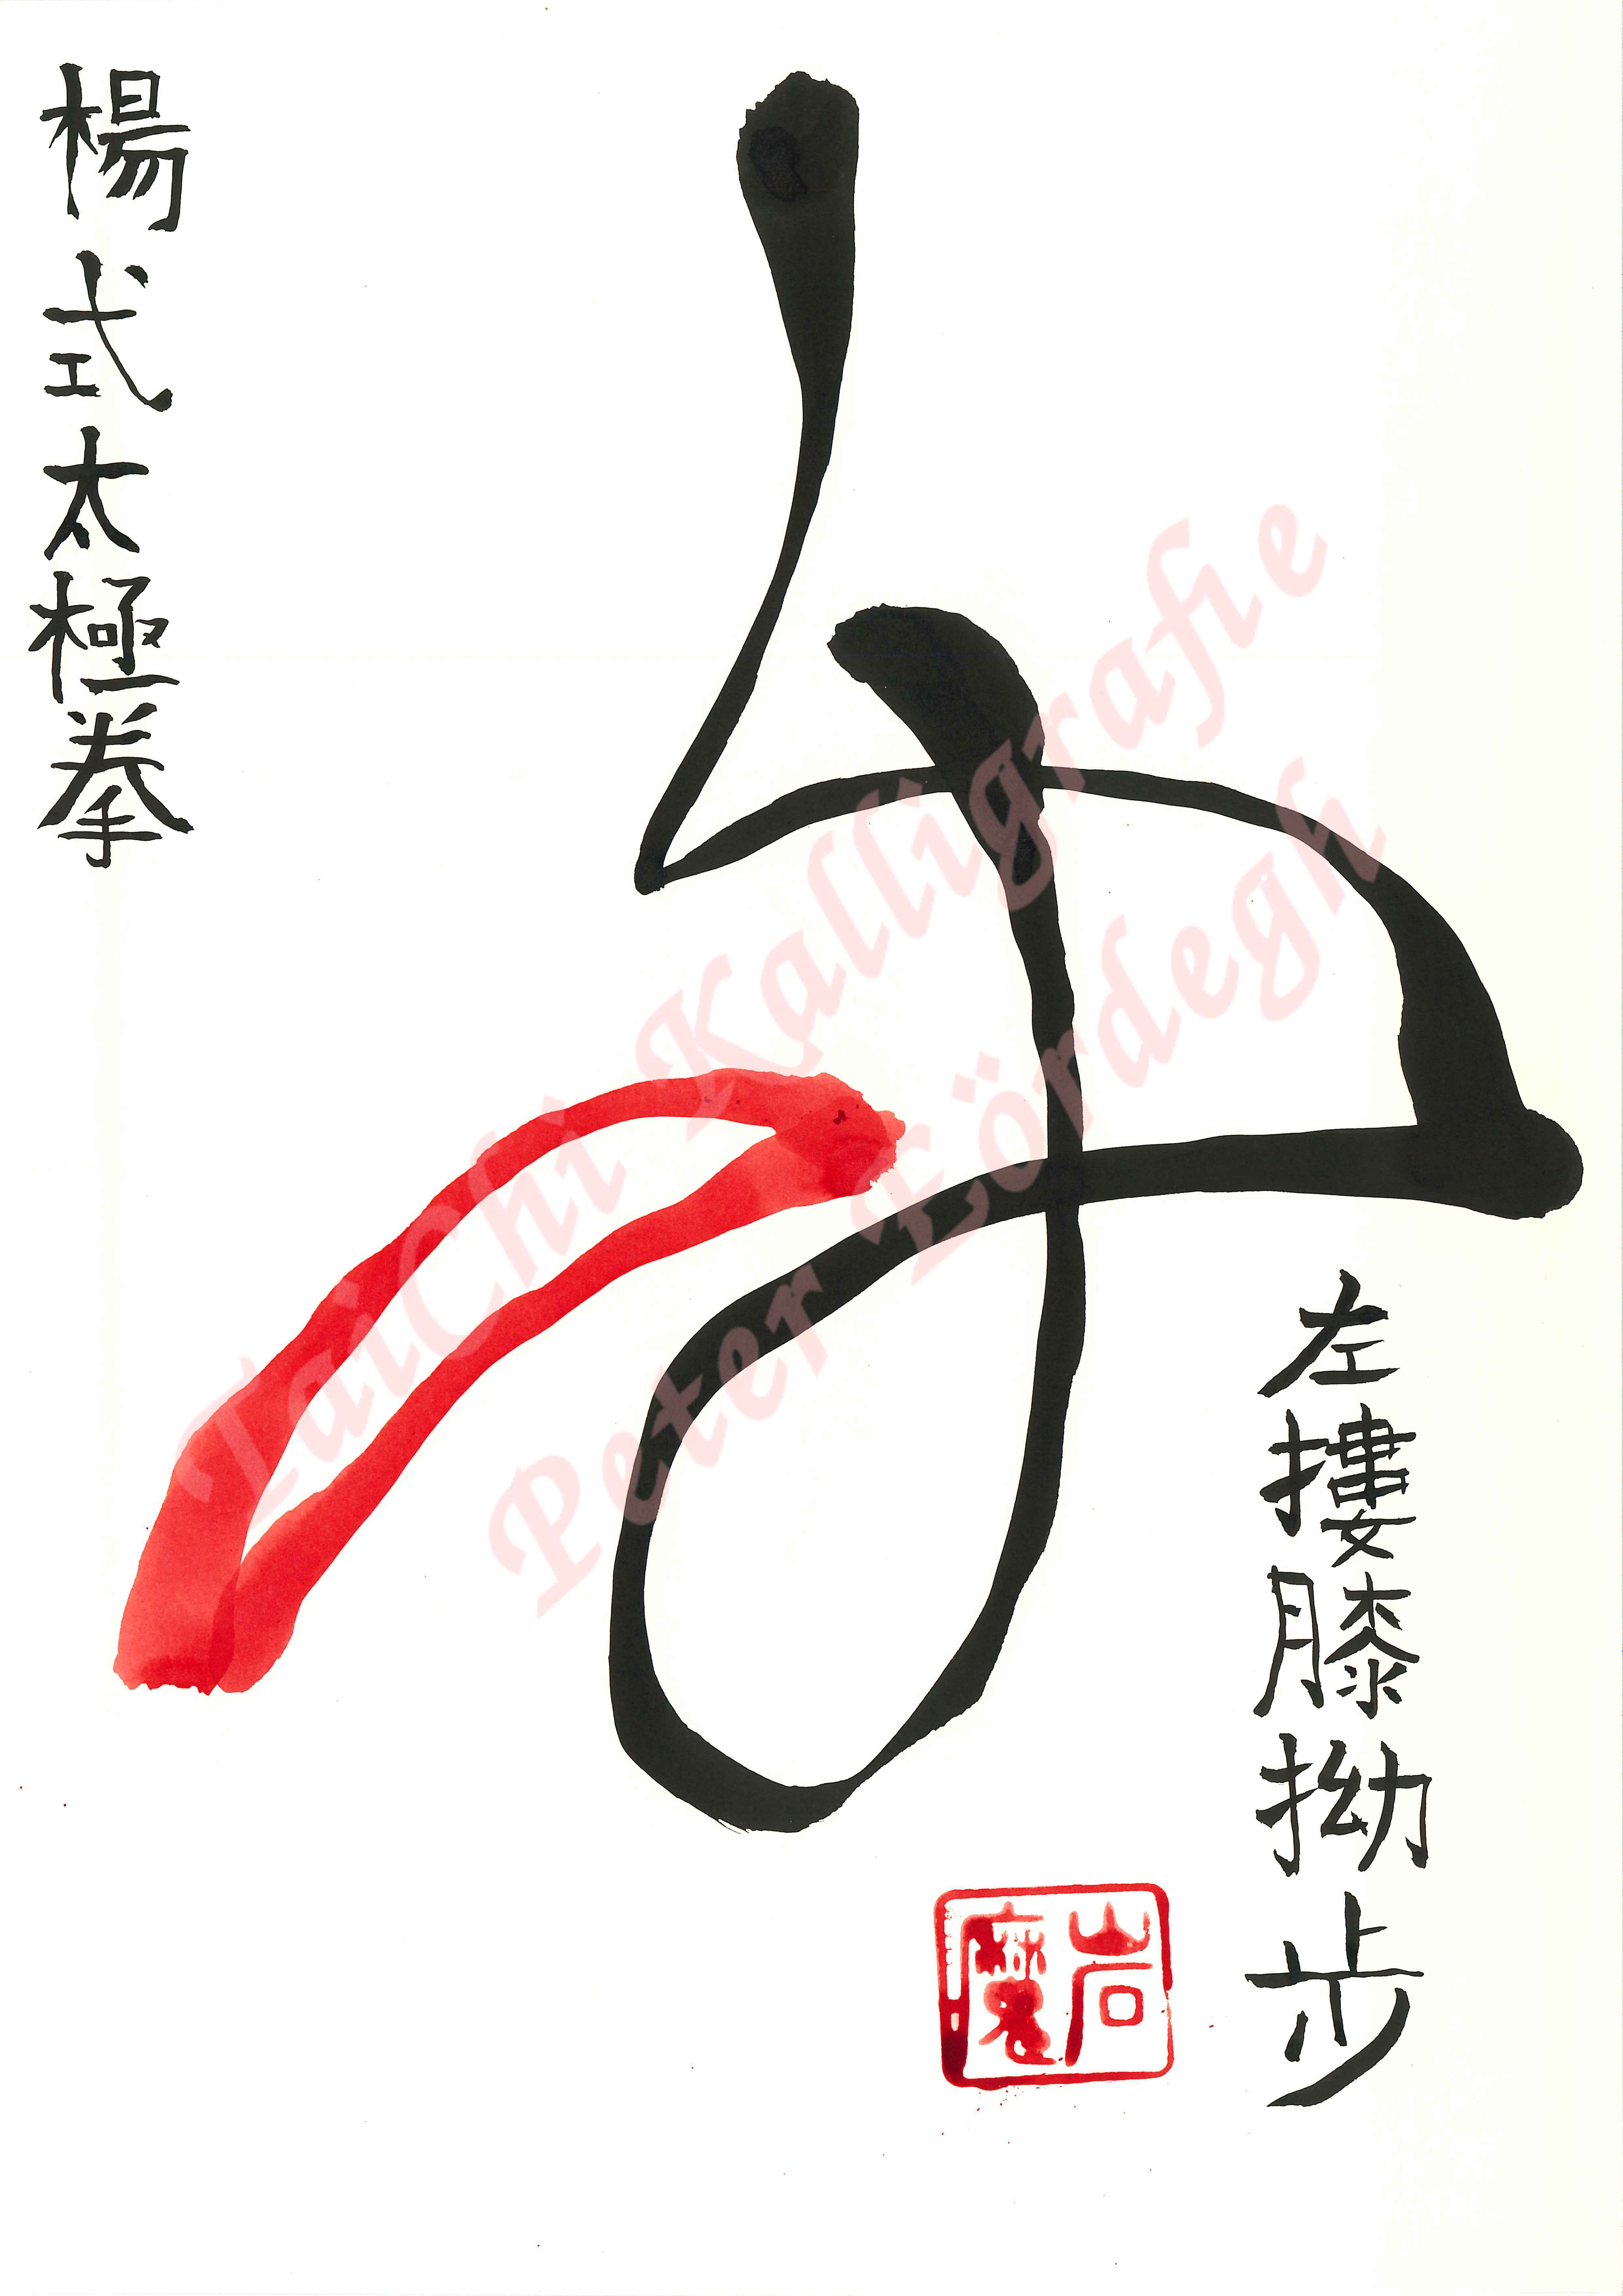 楊式太極拳
左摟膝拗步
岩魔
TaiChi Kalligrafie
Peter Eördegh